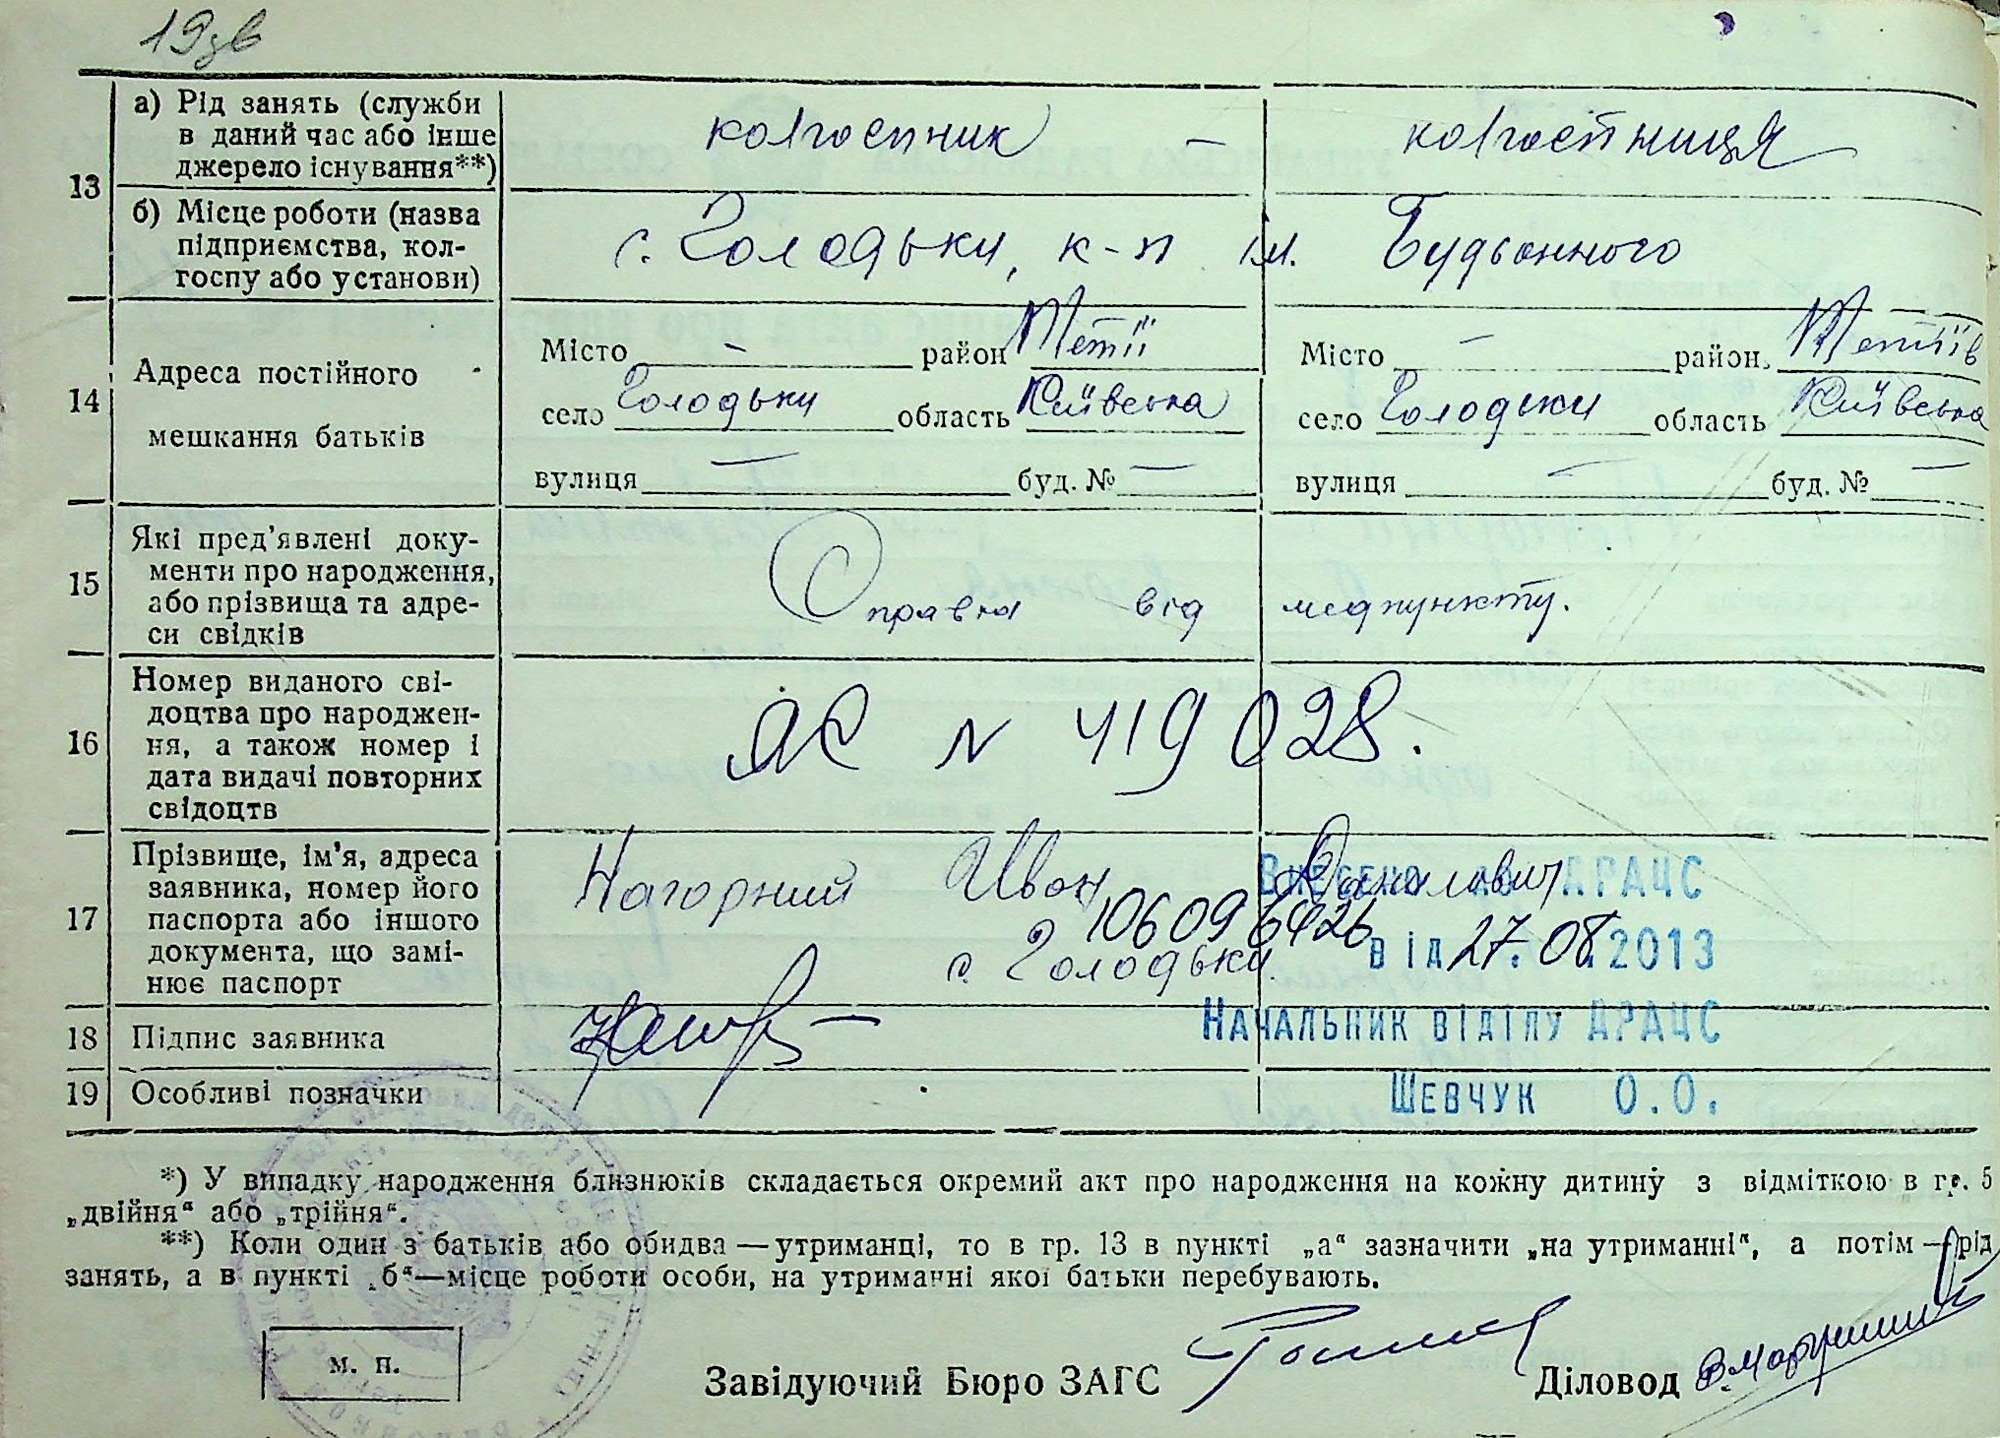 19зв
13
а) Рід занять (служби
в даний час або інше
джерело існування**)
колгоспник —
колгоспниця
б) Місце роботи (назва
підприємства, кол-
госпу або установи)
с. Голодьки, к-п ім. Будьонного
14
Адреса постійного
мешкання батьків
Місто — район Тетії
село Голодьки область Київська
вулиця — буд. № —
Місто — район Тетіїв
село Голодьки область Київська
вулиця — буд. № —
15
Які пред'явлені доку-
менти про народження,
або прізвища та адре-
си свідків
Справка від медпункту.
16
Номер виданого сві-
доцтва про народжен-
ня, а також номер і
дата видачі повторних
свідоцтв
ЯС N 419028.
17
Прізвище, ім'я, адреса
заявника, номер його
паспорта або іншого
документа, що замі-
нює паспорт
Нагорний Иван Данилович
с. Голодьки
ВНЕСЕНО ДРАЦС
ВІД 27.08.2013
НАЧАЛЬНИК ВІДІЛУ ДРАЦС
ШЕВЧУК О.О.
18
Підпис заявника
19
Особливі позначки
*) У випадку народження близнюків складається окремий акт про народження на кожну дитину з відміткою в гр. 5
„двійня“ або „трійня“.
**) Коли один з батьків або обидва — утриманці, то в гр. 13 в пункті „а“ зазначити „на утриманні“, а потім — рід
занять, а в пункті „б“ — місце роботи особи, на утриманні якої батьки перебувають.
м. п.
Завідуючий Бюро ЗАГС
Діловод